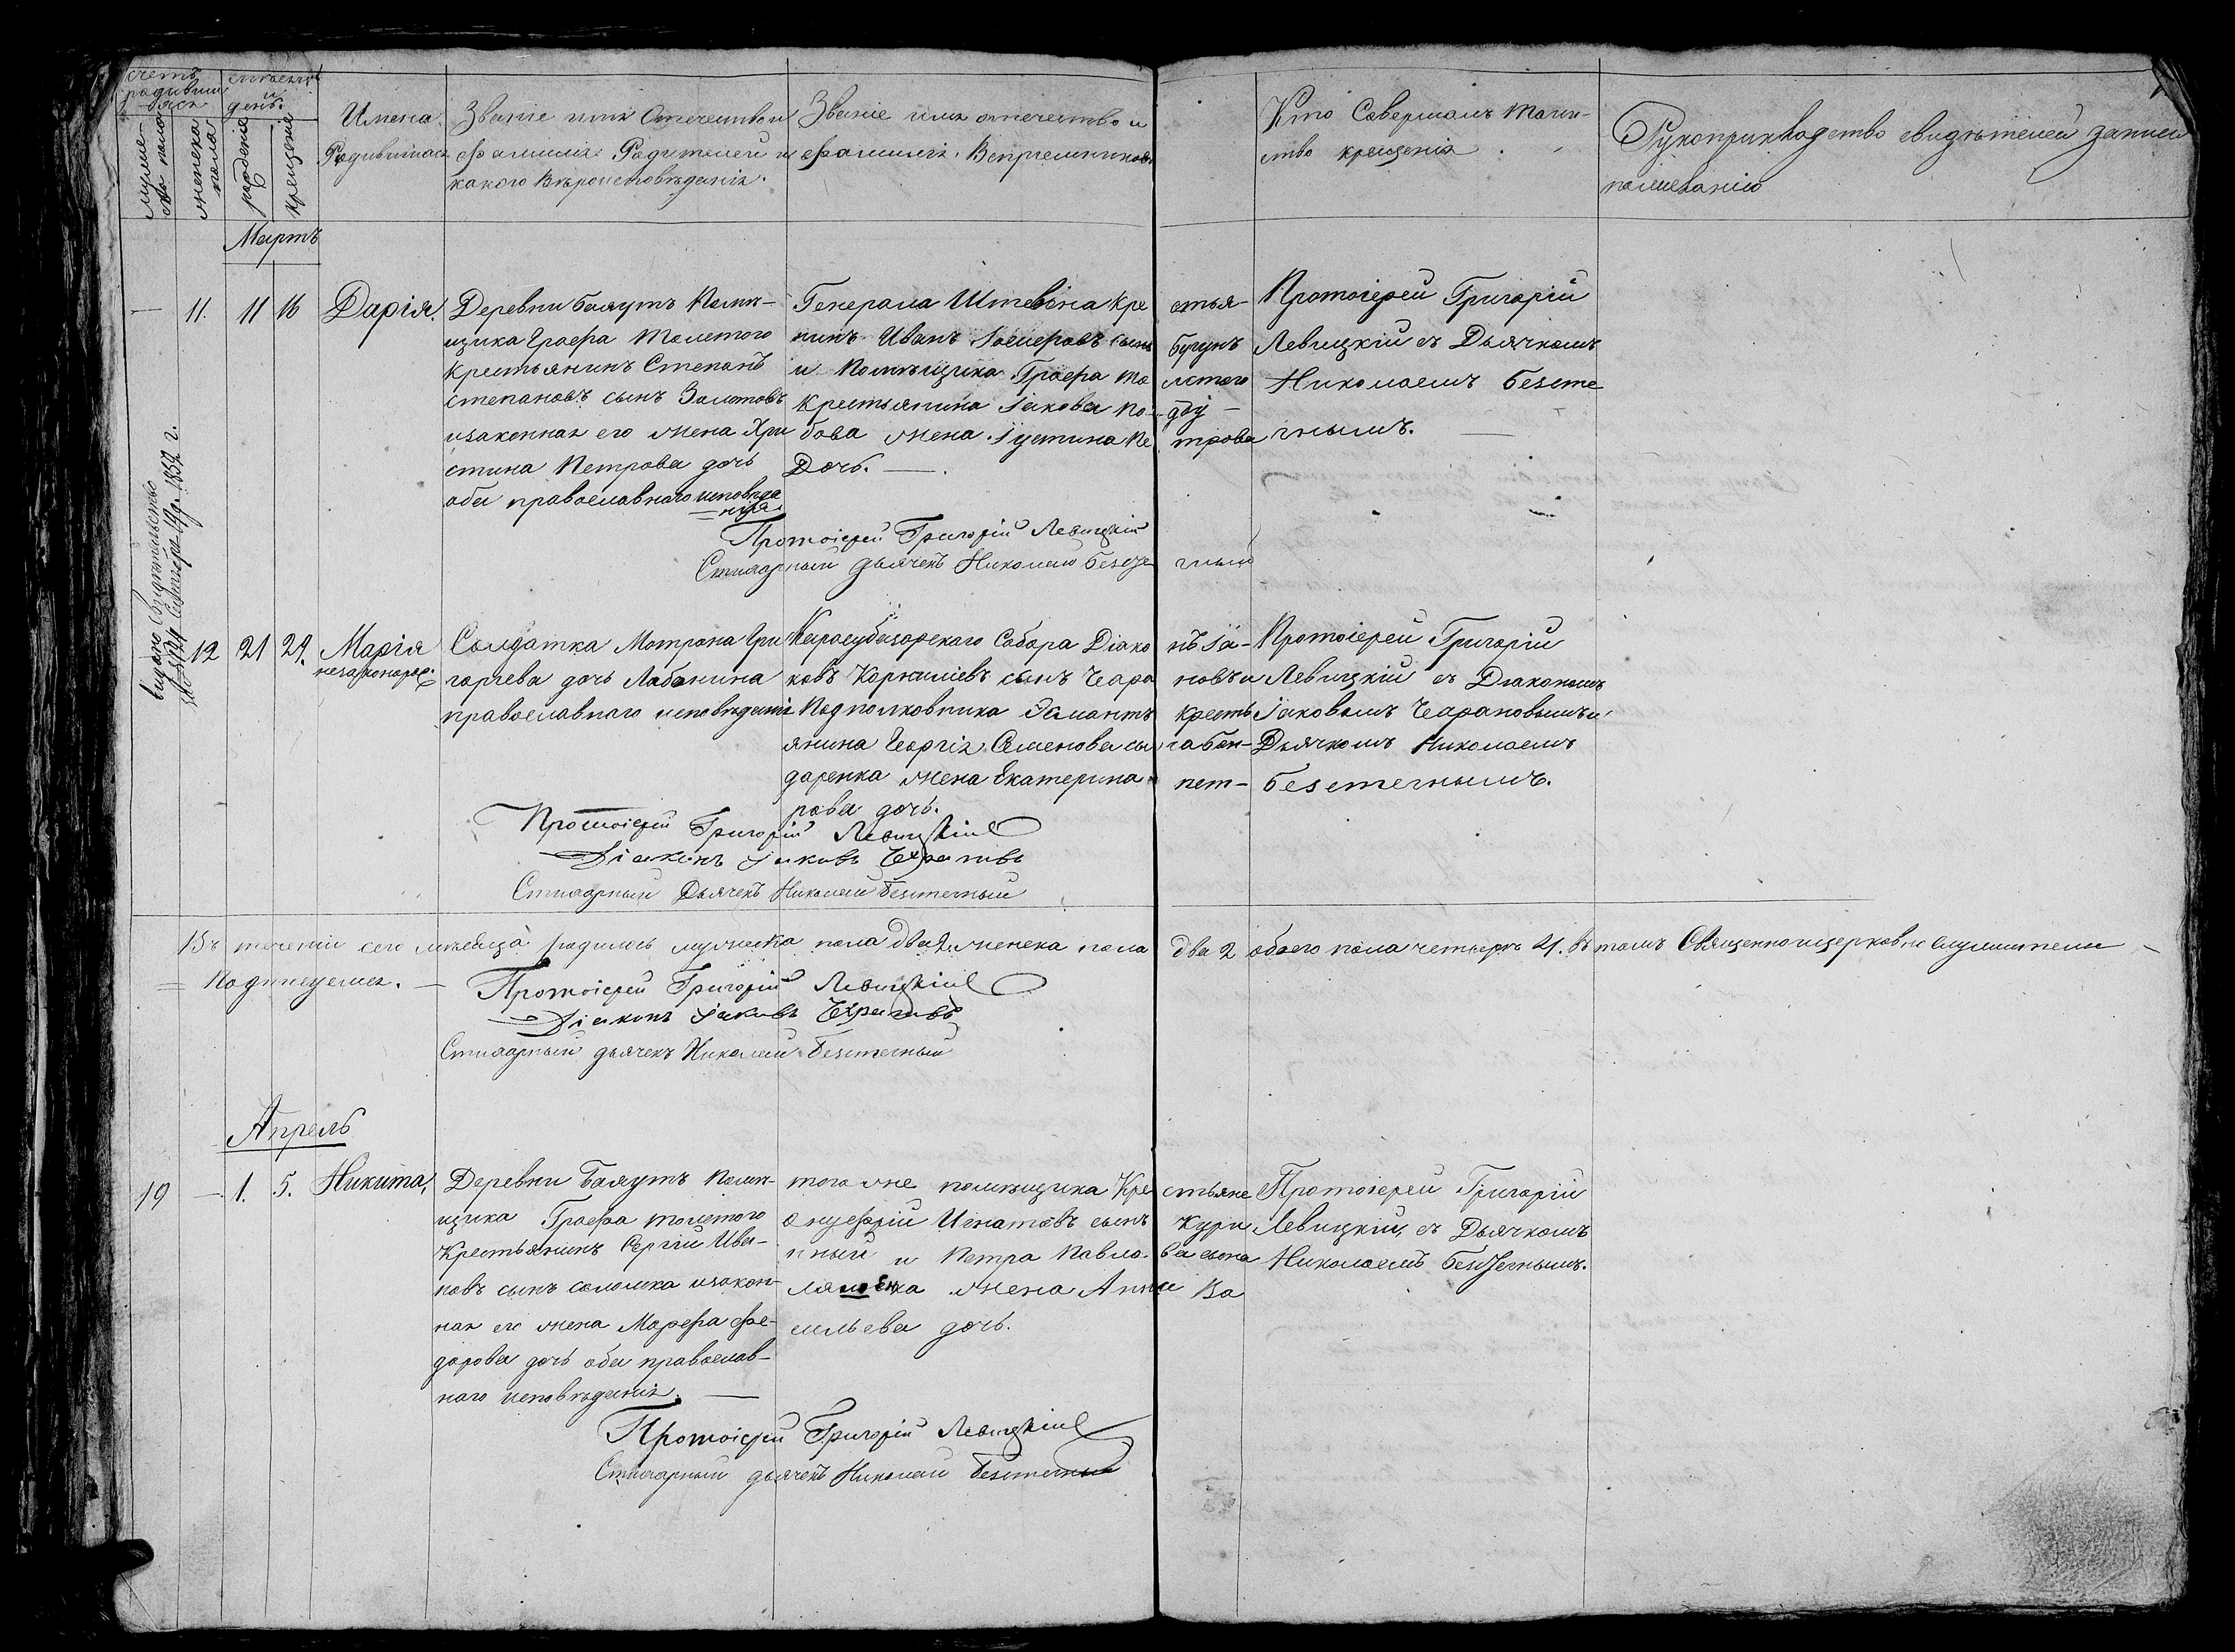 счетъ родивших-
ся
мужес-
ка пола
женска
пола
мѣсяцъ
и
день.
рожденіе
крещеніе
Имена
Родившихся
Званіе имя Отечество и
фамилія Родителей и
какого Вѣроисповѣданія.
Званіе имя отечество и
фамилія Воспріемниковъ
Кто Совершалъ таин-
ство крещенія
Рукоприкладство свидѣтелей записи
по желанію
Мартъ
— 11. 11 16 Дарія.
Деревни Баяутъ Помѣ-
щика Графа Толстого
крестьянинъ Степанъ
степановъ сынъ Золотовъ
изаконная его жена Хри
стина Петрова дочь
оба православнаго исповѣда
нія.
Генерала Штевена кре стья-
нинъ Иванъ сынъ Бугунъ
и Помѣщика Графа То лстого
крестьянина Іакова По- дду-
бова жена Іустина Пе трова
Дочь.
Протоіерей Григорій
Левицкій съ Дьячкомъ
Николаемъ Безсте
чнымъ.
Протоіерей Григорій Левицкій
Стихарный дьячекъ Николай Безсте чный
выдано свидѣтельство
1852 г.
12 21 29. Марія
незаконорож.
Солдатка Мотрона Гри
горьева дочь Лабонина
православнаго исповѣданія
Карасубазарскаго Собора Діако нъ Іа-
ковъ Корниліевъ сынъ Чара новъ и
Подполковника крестъ
янина Георгія Семенова сы на Бон-
даренка жена Екатерина пет-
рова дочь.
Протоіерей Григорій
Левицкій съ Діакономъ
Іаковомъ Чарановымъ и
Дьячкомъ Николаемъ
Безстечнымъ.
Протоіерей Григорій Левицкій
Діаконъ Іаковъ Чарановъ
Стихарный Дьячекъ Николай Безстечный
Въ теченіи сего мѣсяца родилось мужеска пола два 2. женска пола два 2 обоего пола четыре 4. въ томъ Священно и церковно служители
Подписуемся.
Протоіерей Григорій Левицкій
Діаконъ Іаковъ Чарановъ
Стихарный дьячекъ Николай Безстечный
Апрель
19 — 1. 5. Никита,
Деревни Баяутъ Помѣ-
щика Графа толстого
Крестьянинъ Сергій Ива-
новъ сынъ соломка изакон-
ная его жена Марфа фе-
дорова дочь оба православ-
наго исповѣданія.
того же помѣщика Кре стьяне
Онуфрій Игнатовъ сынъ Кури
нный и Петра Павло ва сына
жена Анна Ва
сильева дочь.
Протоіерей Григорій
Левицкій, съ Дьячкомъ
Николаемъ Безстечнымъ.
Протоіерей Григорій Левицкій
Стихарный дьячекъ Николай Безстечный